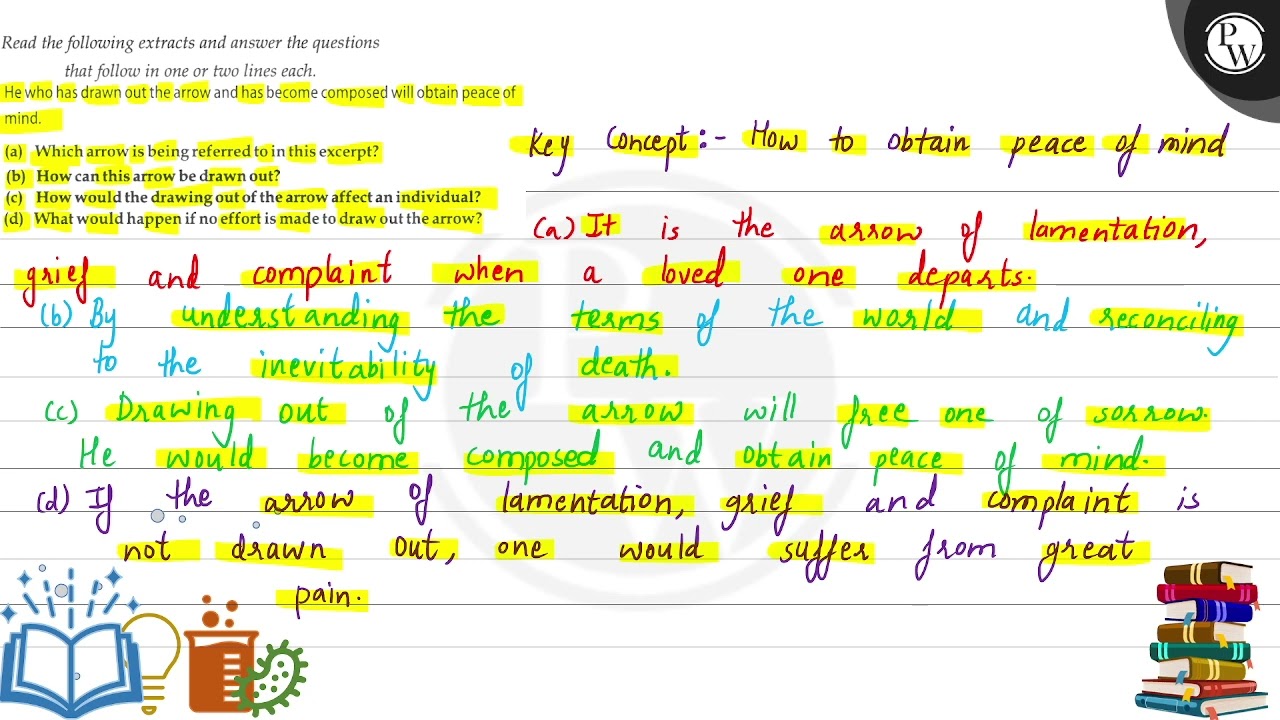 Read the following extracts and answer the questions
that follow in one or two lines each.
He who has drawn out the arrow and has become composed will obtain peace of
mind.
(a) Which arrow is being referred to in this excerpt?
(b) How can this arrow be drawn out?
(c) How would the drawing out of the arrow affect an individual?
(d) What would happen if no effort is made to draw out the arrow?
PW
Key Concept:- How to obtain peace of mind
(a) It is the arrow of lamentation,
grief and complaint when a loved one departs.
(b) By understanding the terms of the world and reconciling
to the inevitability of death.
(c) Drawing out of the arrow will free one of sorrow.
He would become composed and obtain peace of mind.
(d) If the arrow of lamentation, grief and complaint is
not drawn out, one would suffer from great
pain.